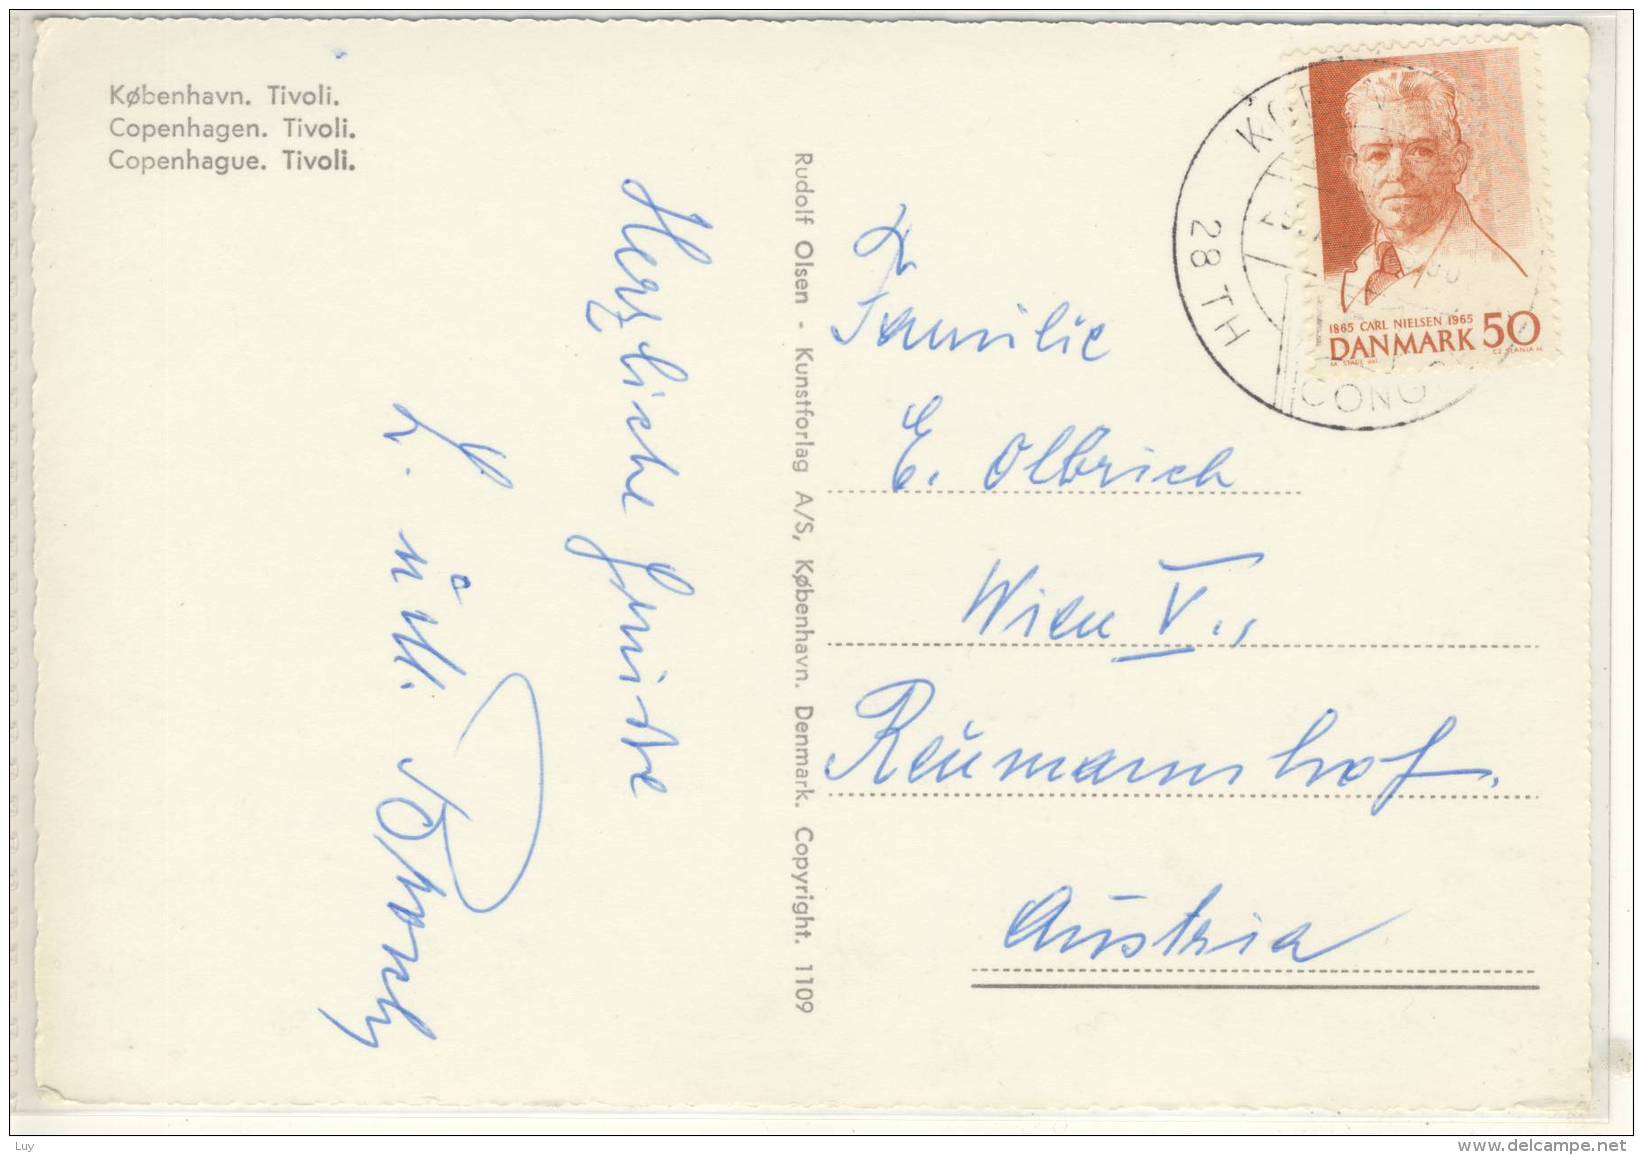 København. Tivoli.
Copenhagen. Tivoli.
Copenhague. Tivoli.
Herzliche Grüsse
Rudolf Olsen - Kunstforlag A/S, København. Denmark. Copyright. 1109
1865 CARL NIELSEN 1965
DANMARK 50
28 TH
CONG
Familie
E. Olbrich
Wien V.,
Reumannhof.
Austria
Luy
www.delcampe.net